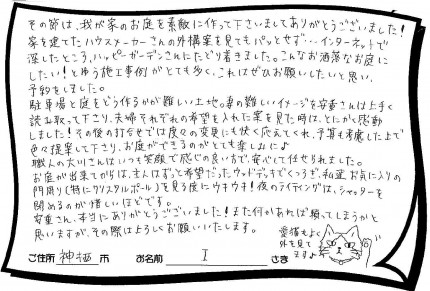 その節は、我が家のお庭を素敵に作って下さいましてありがとうございました！
家を建てたハウスメーカーさんの外構案を見てもパッとせず…インターネットで
探したところ、ハッピーガーデンさんにたどり着きました。こんなお洒落なお庭に
したい！とゆう施工事例がとても多く、これはぜひお願いしたいと思い、
予約をしました。
駐車場と庭をどう作るかが難しい土地。妻の難しいイメージを安重さんは上手く
読み取って下さり、夫婦それぞれの希望を入れた案を見た時は、とにかく感動
しました！その後の打合せでは度々の変更にも快く応えてくれ、予算も考慮した上で
色々提案して下さり、お庭ができるのがとても楽しみに♪
職人の大川さんはいつも笑顔で感じの良い方で、安心して任せられました。
お庭が出来てからは、主人はずっと希望だったウッドデッキでくつろぎ、私達お気に入りの
門周り（特にクリスタルポール）を見る度にウキウキ！夜のライティングは、シャッターを
閉めるのが惜しいほどです。
安重さん、本当にありがとうございました！また何かあれば頼ってしまうかと
思いますが、その際はよろしくお願いいたします。
愛猫もよく
外を見て
ます♪
ご住所 神栖 市 お名前 I さま